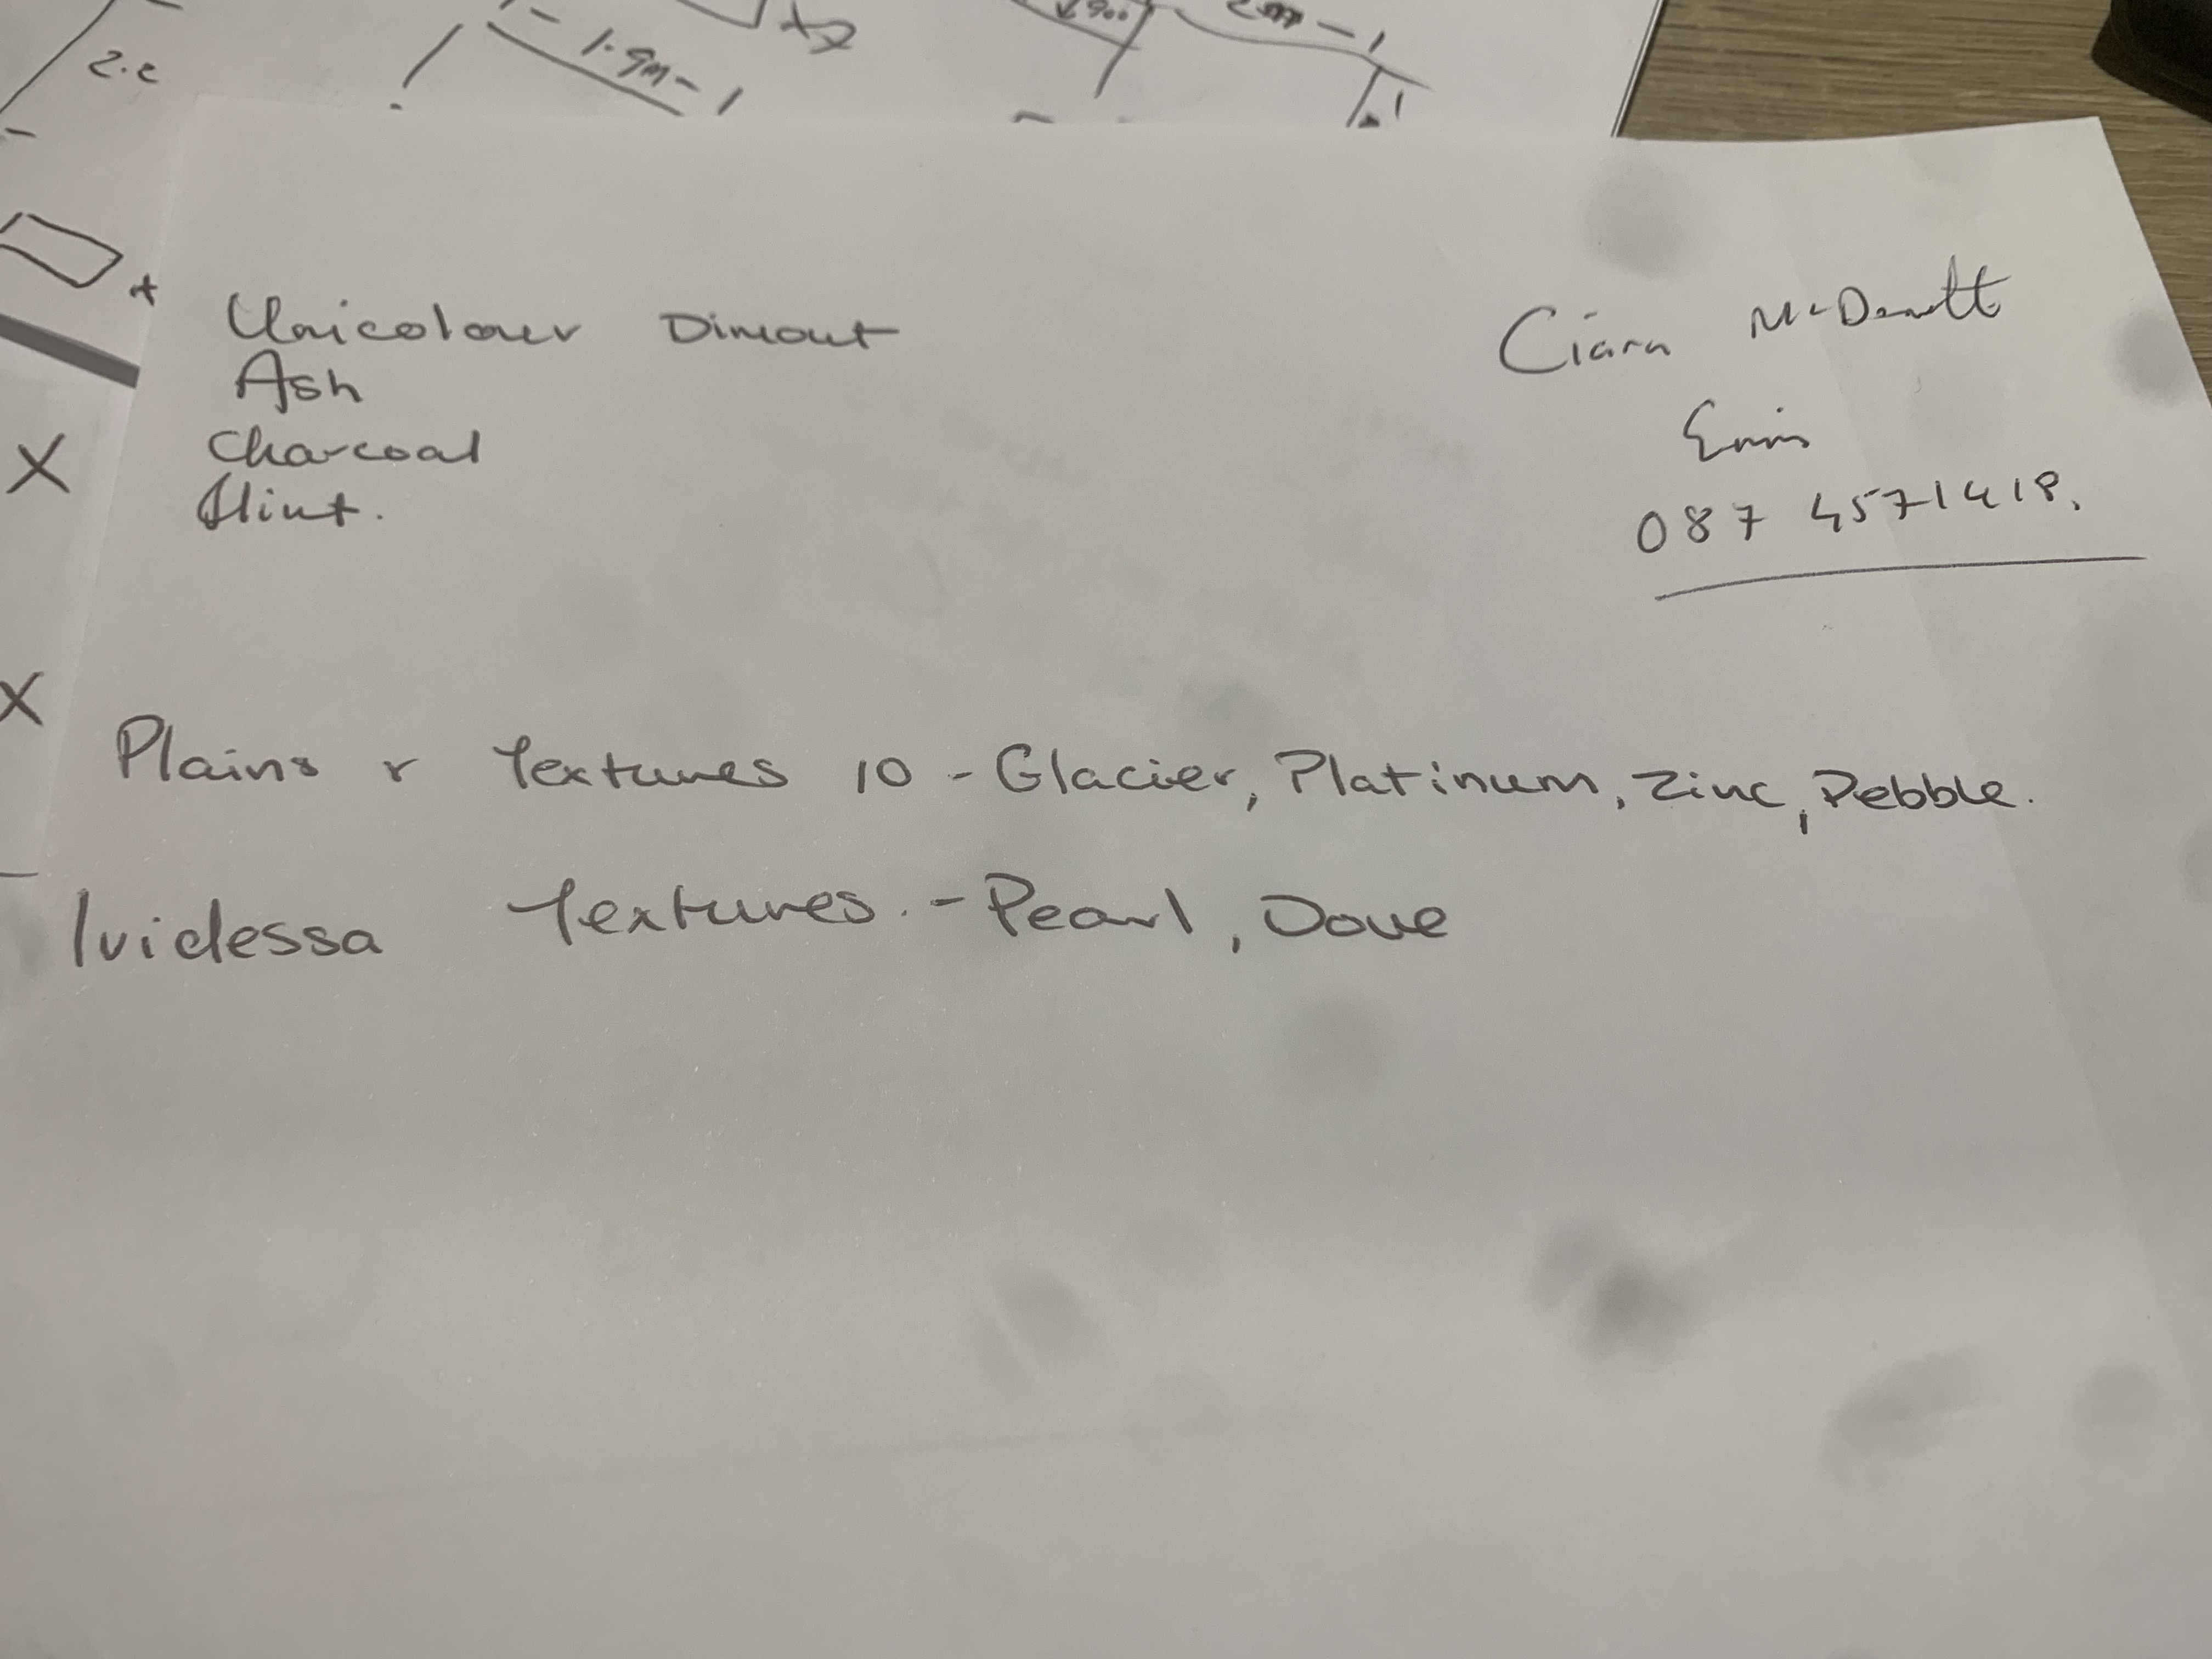 2.2
1.9m
x2
900
Unicolour Dimout
Ash
Charcoal
Flint.
Ciara McDermott
Ennis
087 4571418.
X
X
Plains & Textures 10 - Glacier, Platinum, Zinc, Pebble.
Ividessa Textures. - Pearl, Dove